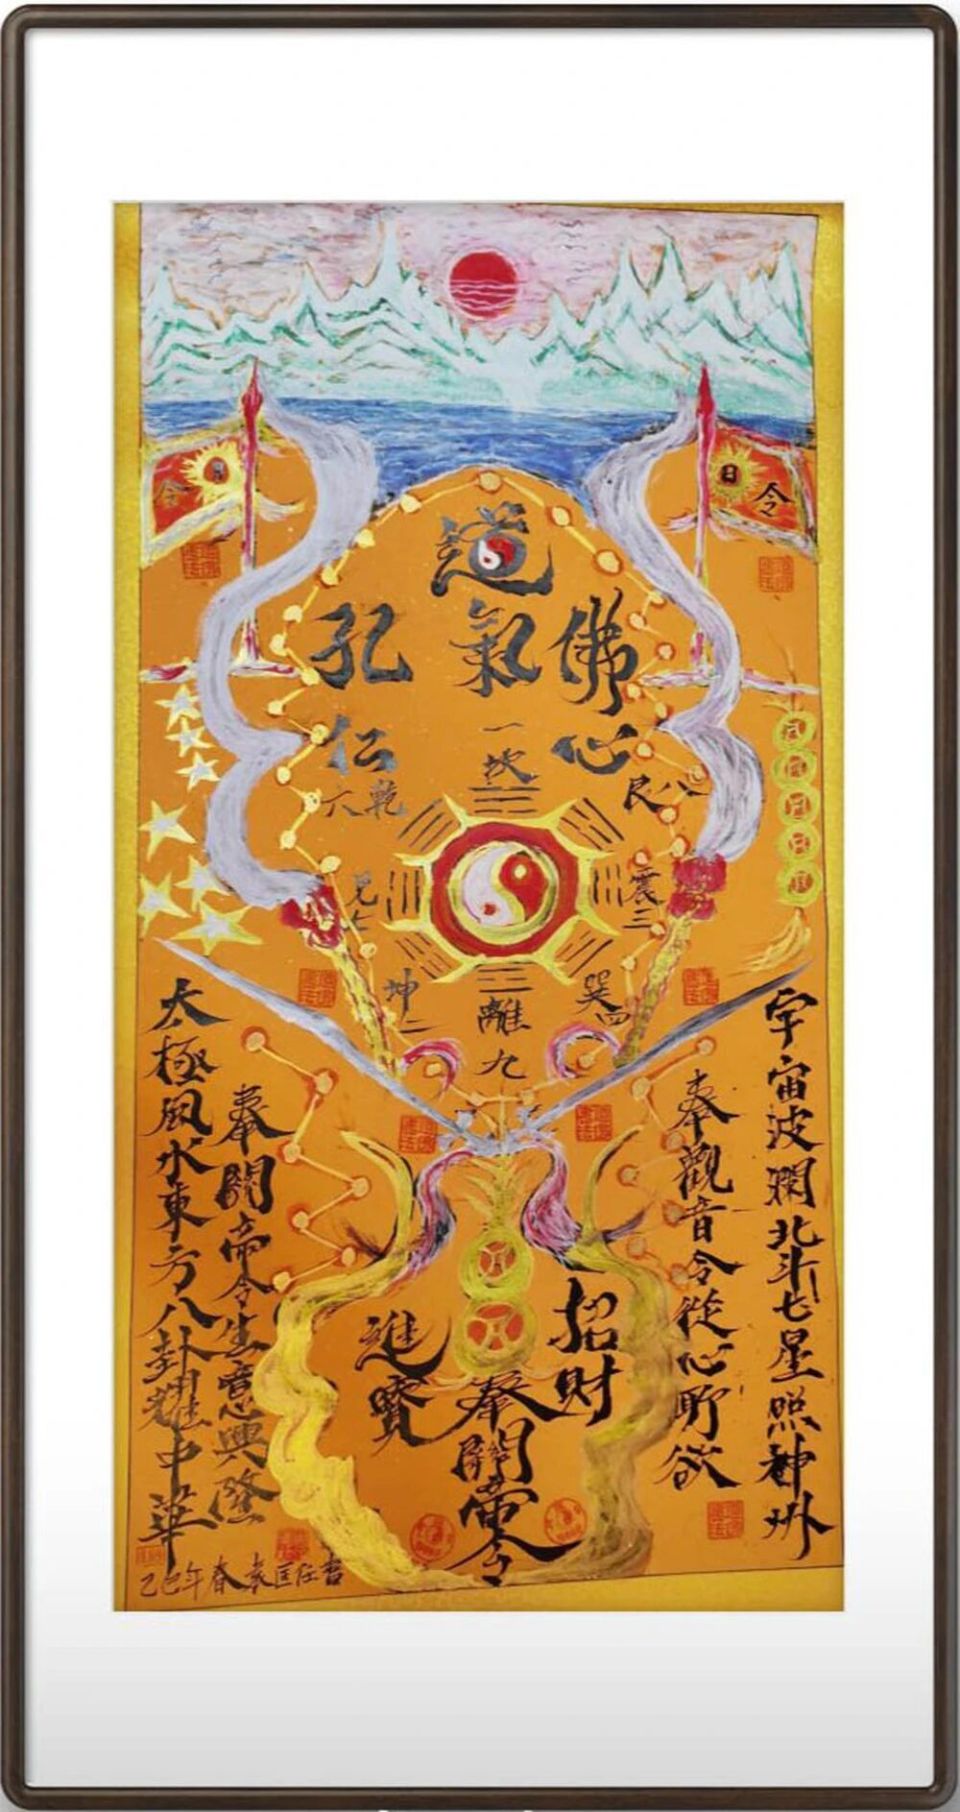 令
日
令
道氣
佛心
孔仁
一坎
八艮
震三
巽四
離九
坤二
兌七
乾六
宇宙波瀾北斗七星照神州
奉觀音令從心所欲
招财
進寶
奉關帝令
奉關帝令生意興隆
太極風水東方八卦耀中華
乙巳年春